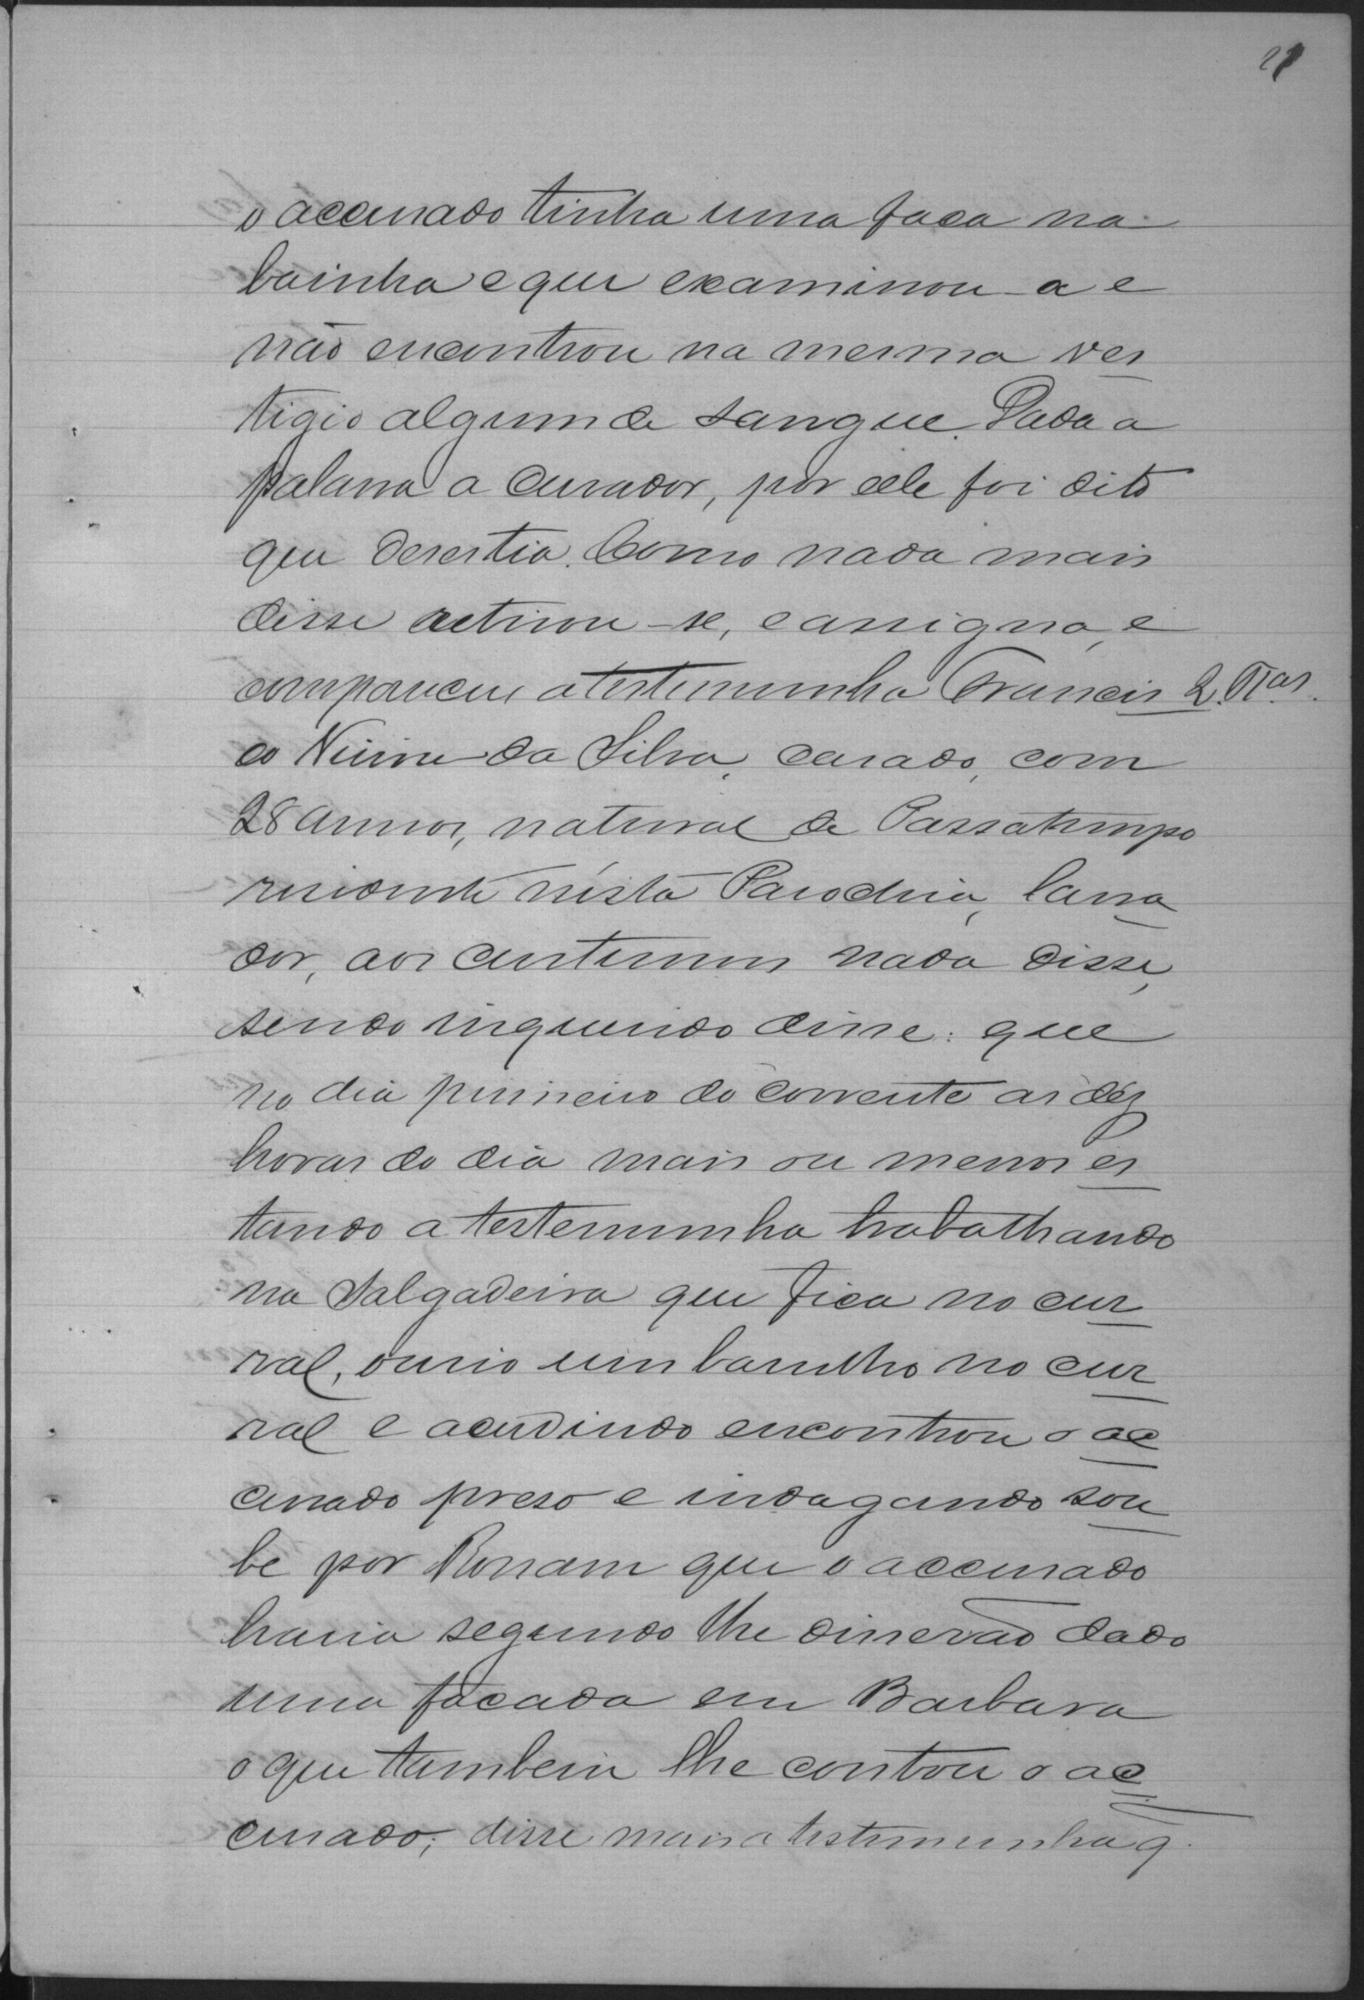 21
o accusado tinha uma faca na
bainha e que examinou-a e
não encontrou na mesma ves
tigio algum de sangue. Dada a
palavra a curador, por elle foi dito
que desestia. Como nada mais
disse retirou-se, e assigna, e
compareceu a testemunha Francis 2.ª Tas.
co Nunes da Silva, casado, com
28 annos, natural de Passatempo
residente nésta Parochia, lavra
dor, aos custumes nada disse,
sendo inquerido disse: que
no dia primeiro do corrente as déz
horas do dia mais ou menos es
tando a testemunha trabalhando
na Salgadeira que fica no cur
ral, ouvio um barulho no cur
ral e acudindo encontrou o ac
cusado preso e indagando sou
be por que o accusado
havia segundo lhe disserão dado
uma facada em Barbara
o que tambem lhe contou o ac
cusado; disse mais a testemunha q.